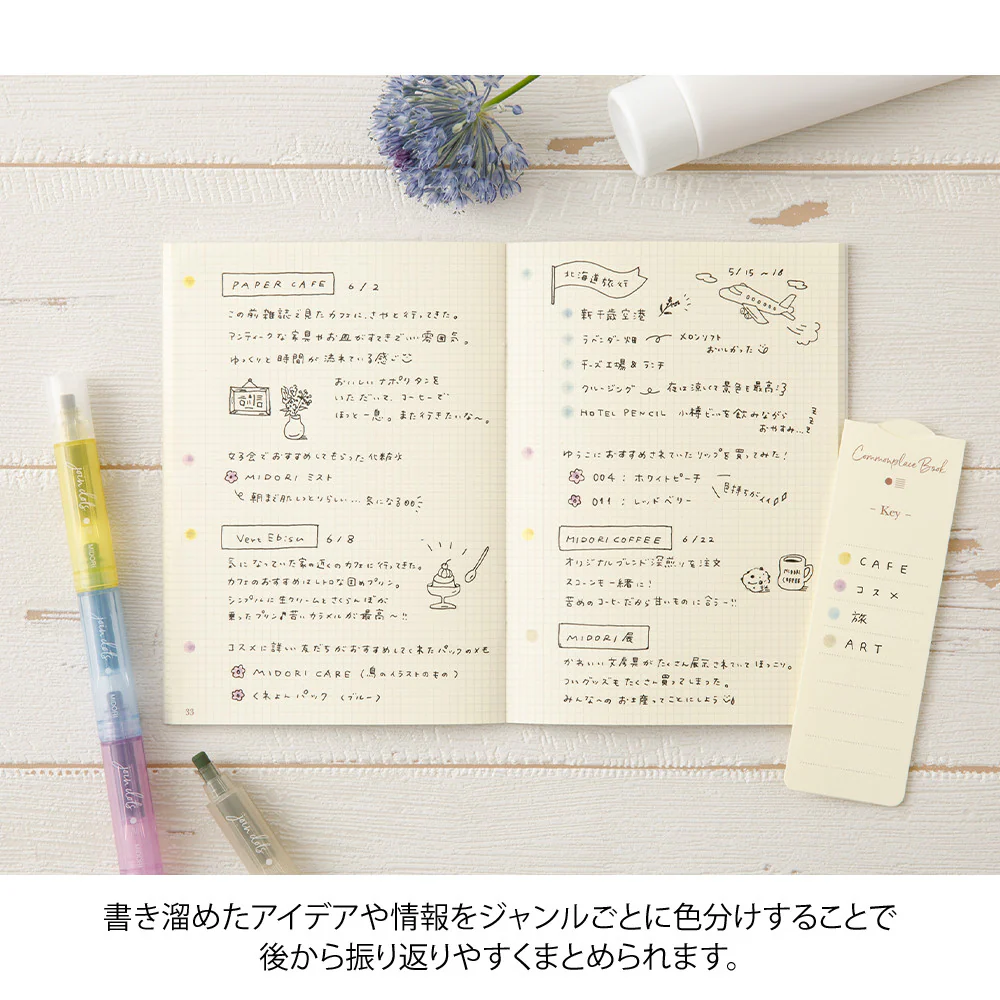 PAPER CAFE 6/2
この前雑誌で見たカフェに、さやと行ってきた。
アンティークな家具やお皿がすてきでいい雰囲気。
ゆっくりと時間が流れている感じ
おいしいナポリタンを
いただいて、コーヒーで
ほっと一息。また行きたいな〜。
女子会でおすすめしてもらった化粧水
MIDORI ミスト
朝まで肌しっとりらしい...気になる
Vert Ebisu 6/8
気になっていた家の近くのカフェに行ってきた。
カフェのおすすめはレトロな固めプリン。
シンプルに生クリームとさくらんぼが
乗ったプリン♪苦いカラメルが最高〜!!
コスメに詳しい友だちがおすすめしてくれたパックのメモ
MIDORI CARE (鳥のイラストのもの)
くれよんパック (ブルー)
33
北海道旅行 5/15〜18
新千歳空港
ラベンダー畑 メロンソフト
おいしかった
チーズ工場&ランチ
クルージング 夜は涼しくて景色も最高!
HOTEL PENCIL 小樽ビールを飲みながら
おやすみ...zzzz
ゆうこにおすすめされていたリップを買ってみた!
004:ホワイトピーチ
011:レッドベリー
色持ちがイイ
MIDORI COFFEE 6/22
オリジナルブレンド深煎りを注文
スコーンも一緒に!
苦めのコーヒーだから甘いものに合う〜!!
MIDORI COFFEE
MIDORI展
かわいい文房具がたくさん展示されていてほっこり。
ついグッズもたくさん買ってしまった。
みんなへのお土産ってことにしよう
Commonplace Book
– Key –
CAFE
コスメ
旅
ART
join dots
MIDORI
join dots
MIDORI
join dots
join dots
書き溜めたアイデアや情報をジャンルごとに色分けすることで
後から振り返りやすくまとめられます。